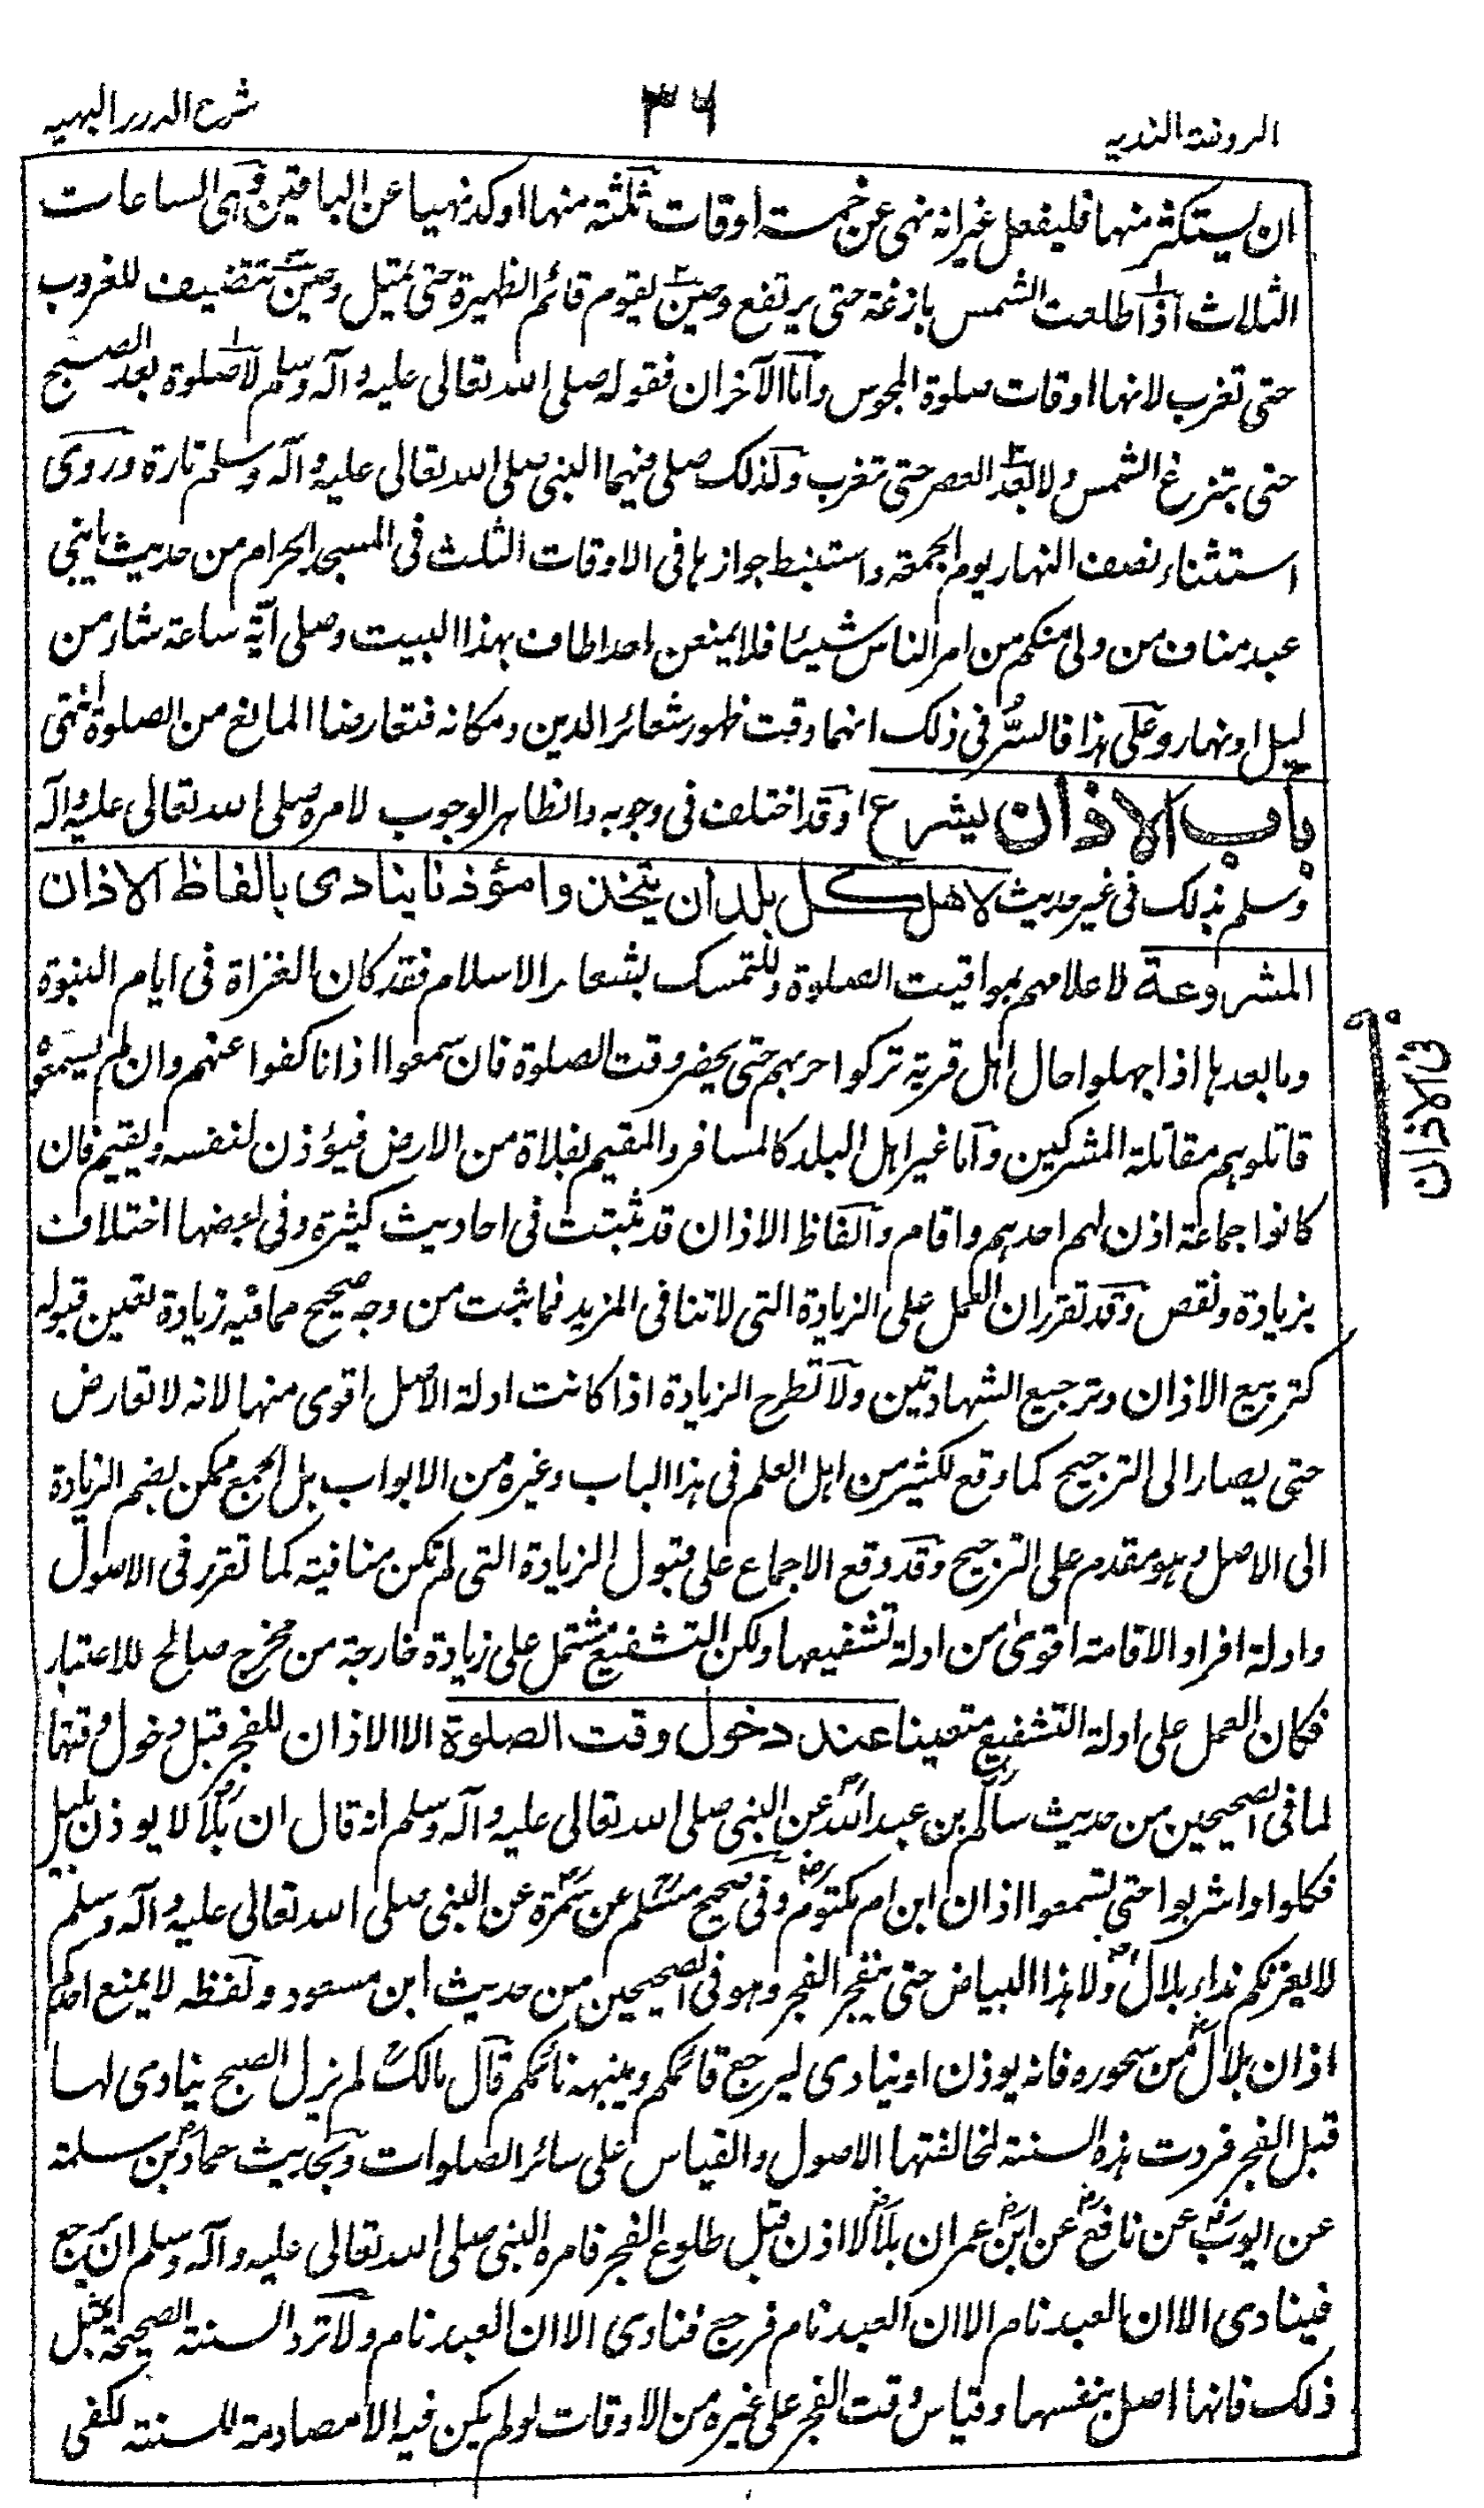 الروضة الندية
٣٦
شرح الدرر البهية
ان يستكثر منها فليفعل غير انه نهى عن خمسة اوقات ثلثة منها اوكد نهيا عن الباقين وهى الساعات
الثلاث اذا طلعت الشمس بازغة حتى يرتفع وحين يقوم قائم الظهيرة حتى تميل وحين تتضيف للغروب
حتى تغرب لانها اوقات صلوة المجوس واما الآخران فقوله صلى الله تعالى عليه وآله وسلم لا صلوة بعد الصبح
حتى تبزغ الشمس ولا بعد العصر حتى تغرب وكذلك صلى فيهما النبى صلى الله تعالى عليه وآله وسلم تارة وروى
استثناء نصف النهار يوم الجمعة واستنبط جوازها فى الاوقات الثلث فى المسجد الحرام من حديث يا بنى
عبد مناف من ولى منكم من امر الناس شيئا فلا يمنعن احدا طاف بهذا البيت وصلى آية ساعة شاء من
ليل او نهار وعلى هذا فالسر فى ذلك انهما وقت ظهور شعائر الدين ومكانه فتعارضا المانع من الصلوة انتهى
باب الاذان يشرع وقد اختلف فى وجوبه والظاهر الوجوب لامره صلى الله تعالى عليه وآله
وسلم بذلك فى غير حديث لاهل كل بلد ان يتخذوا مؤذنا ينادى بالفاظ الاذان
المشروعة لاعلامهم بمواقيت الصلوة وللتمسك بشعار الاسلام فقد كان الغزاة فى ايام النبوة
وما بعدها اذا جهلوا حال اهل قرية تركوا حربهم حتى يحضر وقت الصلوة فان سمعوا اذانا كفوا عنهم وان لم يسمعوا
قاتلوهم مقاتلة المشركين واما غير اهل البلد كالمسافر والمقيم بفلاة من الارض فيؤذن لنفسه ويقيم فان
كانوا جماعة اذن لهم احدهم واقام والفاظ الاذان قد ثبتت فى احاديث كثيرة وفى بعضها اختلاف
بزيادة ونقص وقد تقرر ان العمل على الزيادة التى لا تنافى المزيد فما ثبت من وجه صحيح مما فيه زيادة تعين قبوله
كتربيع الاذان وترجيع الشهادتين ولا تطرح الزيادة اذا كانت ادلة الاصل اقوى منها لانه لا تعارض
حتى يصار الى الترجيح كما وقع لكثير من اهل العلم فى هذا الباب وغيره من الابواب بل الجمع ممكن بضم الزيادة
الى الاصل وهو مقدم على الترجيح وقد وقع الاجماع على قبول الزيادة التى لم تكن منافية كما تقرر فى الاصول
وادلة افراد الاقامة اقوى من ادلة تشفيعها ولكن التشفيع مشتمل على زيادة خارجة من مخرج صالح للاعتبار
فكان العمل على ادلة التشفيع متعينا عند دخول وقت الصلوة الا الاذان للفجر قبل دخول وقتها
لما فى الصحيحين من حديث سالم بن عبد الله عن النبى صلى الله تعالى عليه وآله وسلم انه قال ان بلالا يوذن بليل
فكلوا واشربوا حتى تسمعوا اذان ابن ام مكتوم وفى صحيح مسلم عن سمرة عن النبى صلى الله تعالى عليه وآله وسلم
لا يغرنكم نداء بلال ولا هذا البياض حتى ينفجر الفجر وهو فى الصحيحين من حديث ابن مسعود ولفظه لا يمنع احدكم
اذان بلال من سحوره فانه يوذن او ينادى ليرجع قائمكم وينبه نائمكم قال مالك لم يزل الصبح ينادى لها
قبل الفجر فردت هذه السنة لمخالفتها الاصول والقياس على سائر الصلوات وبحديث حماد بن سلمة
عن ايوب عن نافع عن ابن عمر ان بلالا اذن قبل طلوع الفجر فامره النبى صلى الله تعالى عليه وآله وسلم ان يرجع
فينادى الا ان العبد نام الا ان العبد نام فرجع فنادى الا ان العبد نام ولا ترد السنة الصحيحة بمثل
ذلك فانها اصل بنفسها وقياس وقت الفجر على غيره من الاوقات لو لم يكن فيه الا مصادمة للسنة لكفى
فى الاذان